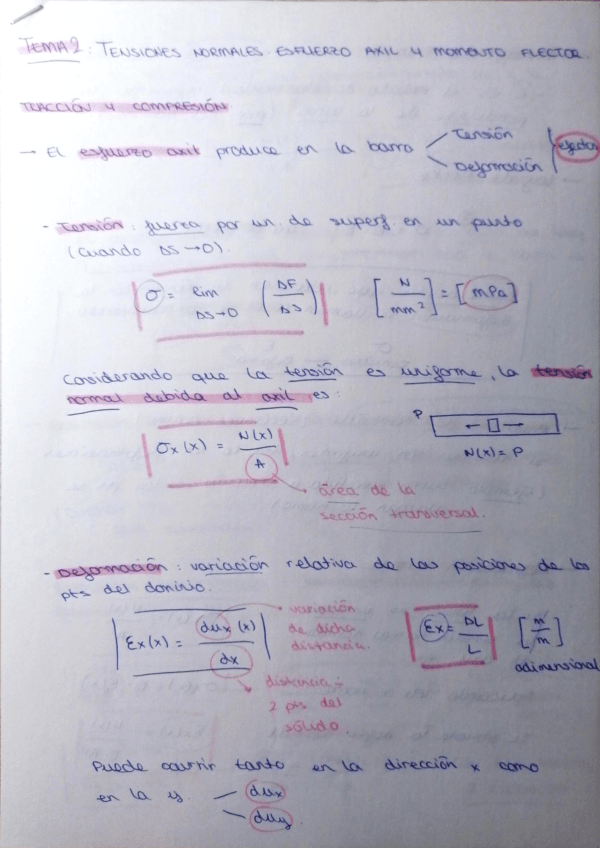 TEMA 2: TENSIONES NORMALES. ESFUERZO AXIL Y MOMENTO FLECTOR.
TRACCIÓN Y COMPRESIÓN
→ El esfuerzo axil produce en la barra
Tensión
Deformación
efectos
- Tensión: fuerza por un. de superf en un punto
(cuando ΔS→0).
σ = lim ΔS→0 (ΔF/ΔS) [N/mm²] = [mPa]
Considerando que la tensión es uniforme, la tensión
normal debida al axil es:
σx(x) = N(x)/A
P
N(x) = P
área de la
sección transversal.
- Deformación: variación relativa de las posiciones de los
pts del dominio.
εx(x) = dux(x)/dx
variación
de dicha
distancia.
distancia ÷
2 pts del
sólido.
εx = ΔL/L [m/m]
adimensional
Puede ocurrir tanto en la dirección x como
en la y.
dux
duy